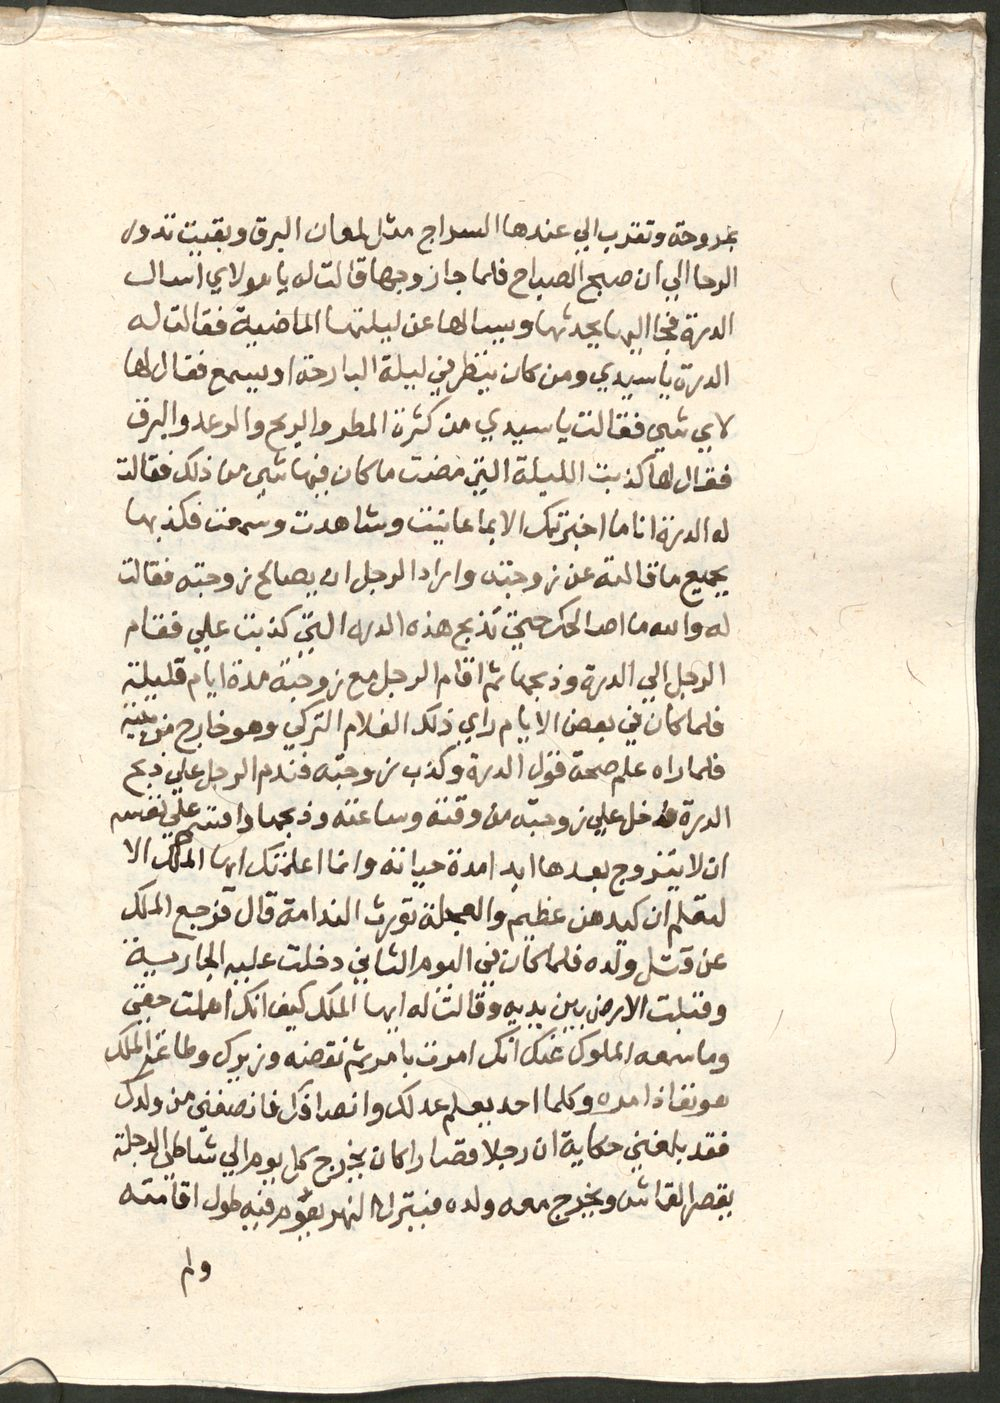 بمروحة وتقرب الي عندها السراج مثل لمعان البرق وبقيت تدور
الرحا الي ان صبح الصباح فلما جا زوجها قالت له يا مولاي اسال
الدرة فجا اليها يحدثها ويسالها عن ليلتها الماضية فقالت له
الدرة يا سيدي ومن كان ينظر في ليلة البارحة او يسمع فقال لها
لاي شي فقالت يا سيدي من كثرة المطر والريح والرعد والبرق
فقال لها كذبت الليلة التي مضت ما كان فيها شي من ذلك فقالت
له الدرة انا ما اخبرتك الا بما عاينت وشاهدت وسمعت فكذبها
بجميع ما قالته عن زوجته واراد الرجل ان يصالح زوجته فقالت
له والله ما اصالحك حتي تذبح هذه الدره التي كذبت علي فقام
الرجل الي الدرة وذبحها ثم اقام الرجل مع زوجته مدة ايام قليلة
فلما كان في بعض الايام راي ذلك الغلام التركي وهو خارج من بيته
فلما راه علم صحة قول الدرة وكذب زوجته فندم الرجل علي ذبح
الدرة ودخل علي زوجته من وقته وساعته وذبحها واقسم علي نفسه
ان لا يتزوج بعدها ابدا مدة حياته وانما اعلمتك ايها الملك الا
لتعلم ان كيدهن عظيم والعجلة تورث الندامة قال فرجع الملك
عن قتل ولده فلما كان في اليوم الثاني دخلت عليه الجارية
وقبلت الارض بين يديه وقالت له ايها الملك كيف انك اهملت حقي
وما سمعه الملوك عنك انك امرت بامر ثم نقضه وزيرك وطاعة الملك
هو نفاذ امره وكلما احد يعلم عدلك وانصافك فانصفني من ولدك
فقد بلغني حكاية ان رجلا قصارا كان يخرج كل يوم الي شاطي الدجلة
يقصر القماش ويخرج معه ولده فينزل النهر يعوم فيه طول اقامته
ولم